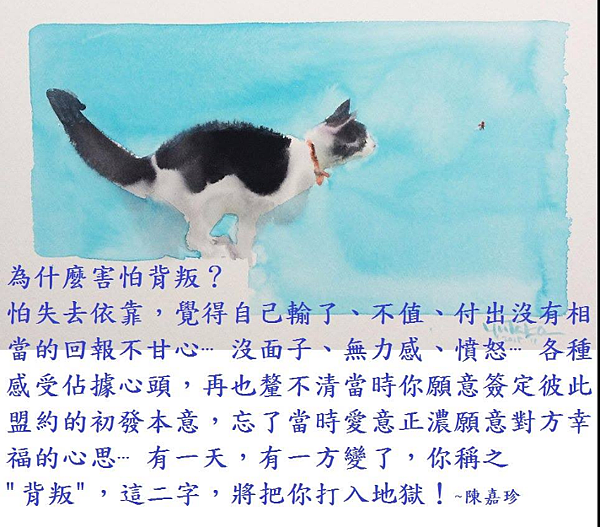 為什麼害怕背叛？
怕失去依靠，覺得自己輸了、不值、付出沒有相
當的回報不甘心… 沒面子、無力感、憤怒… 各種
感受佔據心頭，再也釐不清當時你願意簽定彼此
盟約的初發本意，忘了當時愛意正濃願意對方幸
福的心思… 有一天，有一方變了，你稱之
"背叛"，這二字，將把你打入地獄！~陳嘉珍